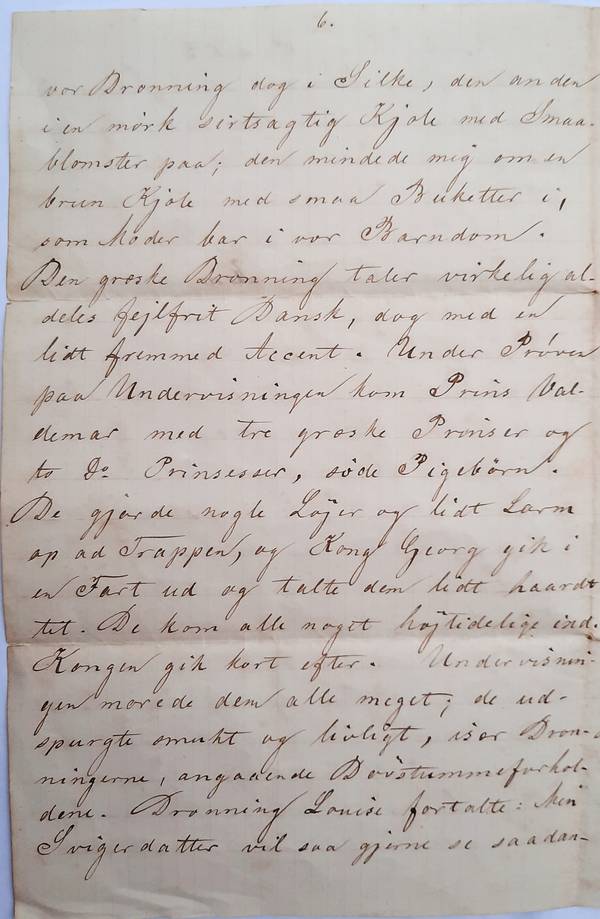 6.
vor Dronning dog i Silke, den anden
i en mörk sirtsagtig Kjole med Smaa-
blomster paa; den mindede mig om en
brun Kjole med smaa Buketter i,
som Moder bar i vor Barndom.
Den græske Dronning taler virkelig al-
deles fejlfrit Dansk, dog med en
lidt fremmed Accent. Under Pröven
paa Undervisningen kom Prins Val-
demar med tre græske Prinser og
to Do Prinsesser, söde Pigebörn.
De gjorde nogle Löjer og lidt Larm
op ad Trappen, og Kong Georg gik i
en Fart ud og talte dem lidt haardt
tet. De kom alle noget höjtidelige ind.
Kongen gik kort efter. Undervisnin-
gen morede dem alle meget; de ud-
spurgte smukt og livligt, især Dron-
ningerne, angaaende Dövstummeforhol-
dene. Dronning Louise fortalte: Min
Svigerdatter vil saa gjerne se saadan-